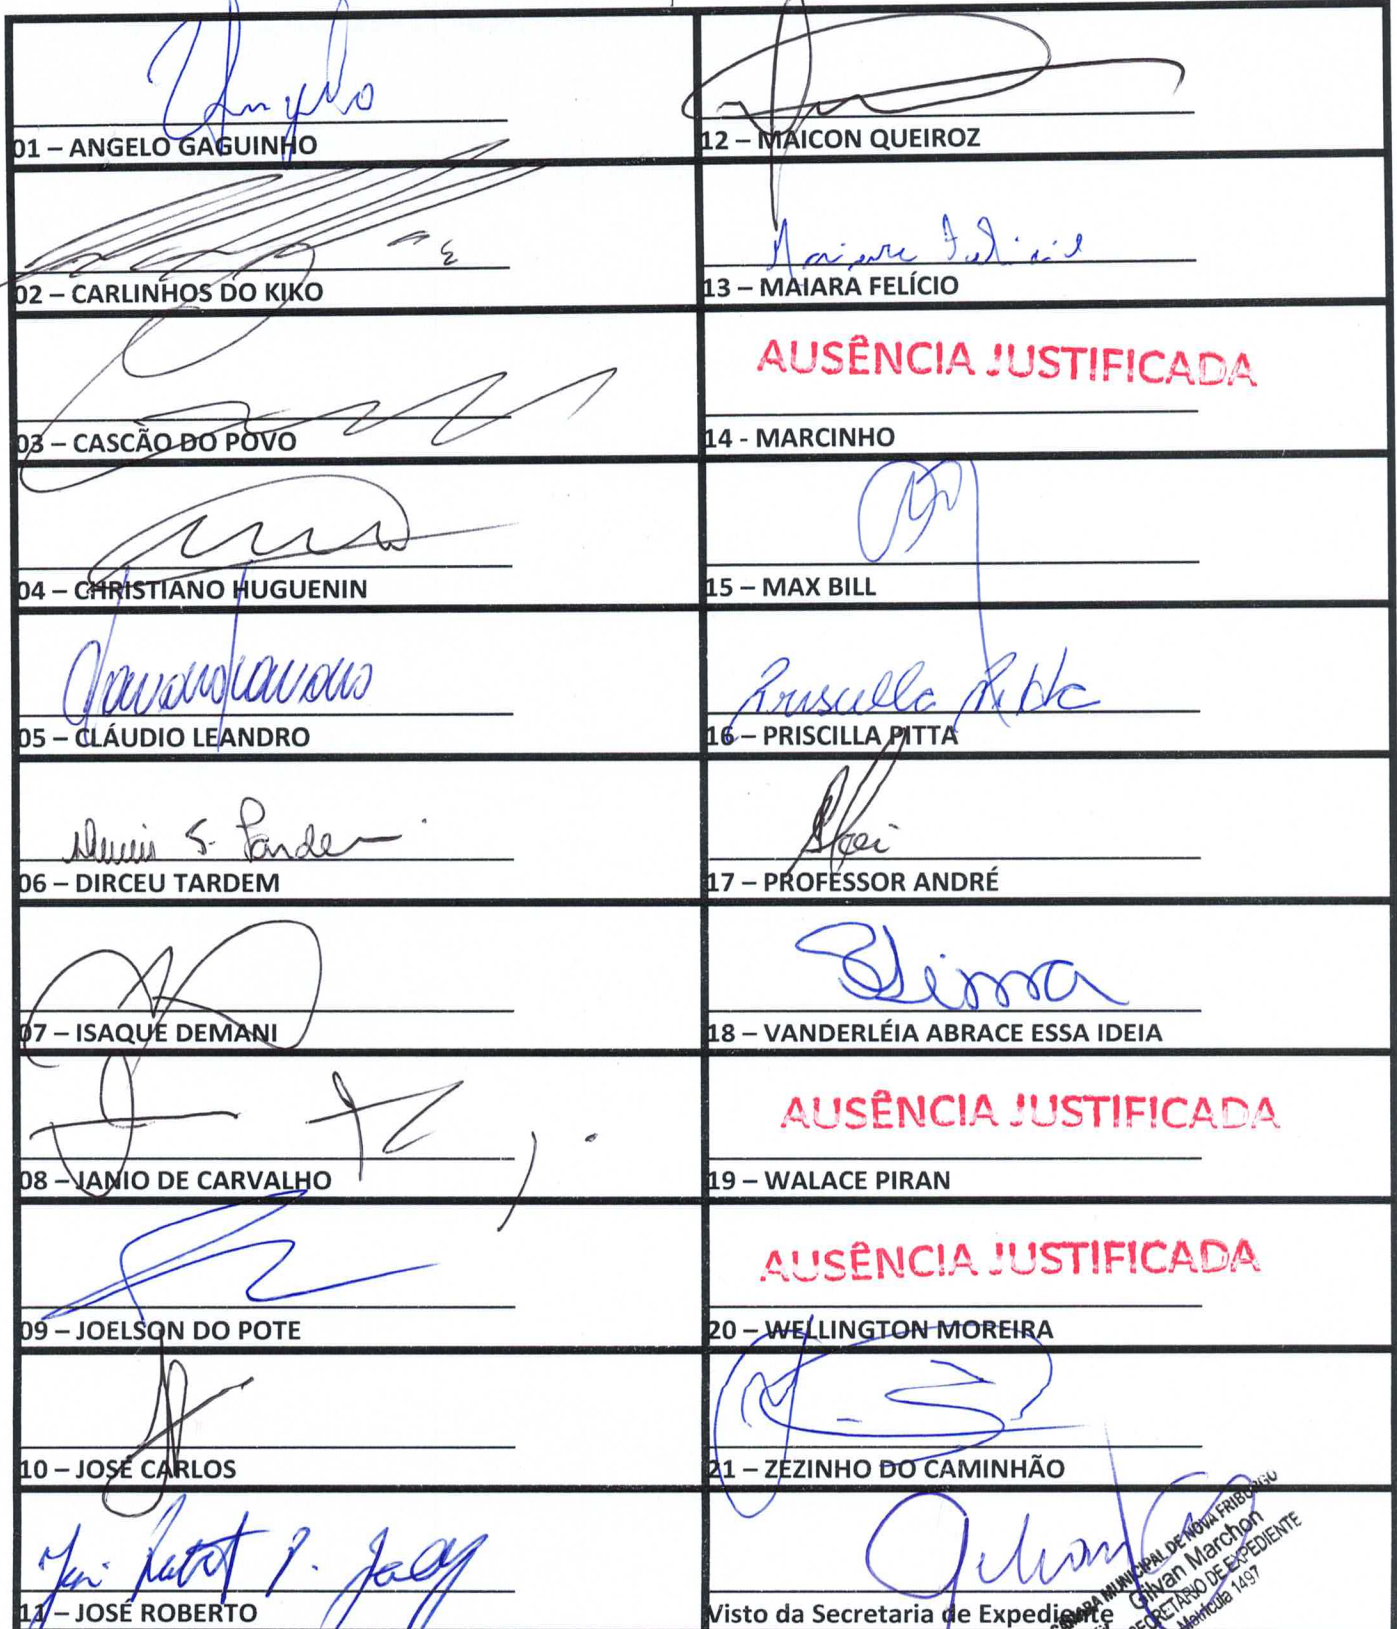 Angelo
01 – ANGELO GAGUINHO
02 – CARLINHOS DO KIKO
03 – CASCÃO DO POVO
04 – CHRISTIANO HUGUENIN
05 – CLÁUDIO LEANDRO
06 – DIRCEU TARDEM
07 – ISAQUE DEMANI
08 – JANIO DE CARVALHO
09 – JOELSON DO POTE
10 – JOSÉ CARLOS
11 – JOSÉ ROBERTO
12 – MAICON QUEIROZ
13 – MAIARA FELÍCIO
AUSÊNCIA JUSTIFICADA
14 - MARCINHO
15 – MAX BILL
Priscilla Pitta
16 – PRISCILLA PITTA
17 – PROFESSOR ANDRÉ
18 – VANDERLÉIA ABRACE ESSA IDEIA
AUSÊNCIA JUSTIFICADA
19 – WALACE PIRAN
AUSÊNCIA JUSTIFICADA
20 – WELLINGTON MOREIRA
21 – ZEZINHO DO CAMINHÃO
Visto da Secretaria de Expediente
CÂMARA MUNICIPAL DE NOVA FRIBURGO
Gilvan Marchon
SECRETÁRIO DE EXPEDIENTE
Matrícula 1497